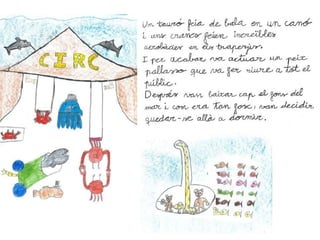 CIRC
Un tauró feia de bala en un canó
i uns crancs feien increïbles
acrobàcies en els trapezis.
I per acabar va actuar un peix
pallasso que va fer riure a tot el
públic.
Després van baixar cap al fons del
mar i com era tan fosc, van decidir
quedar-se allà a dormir.